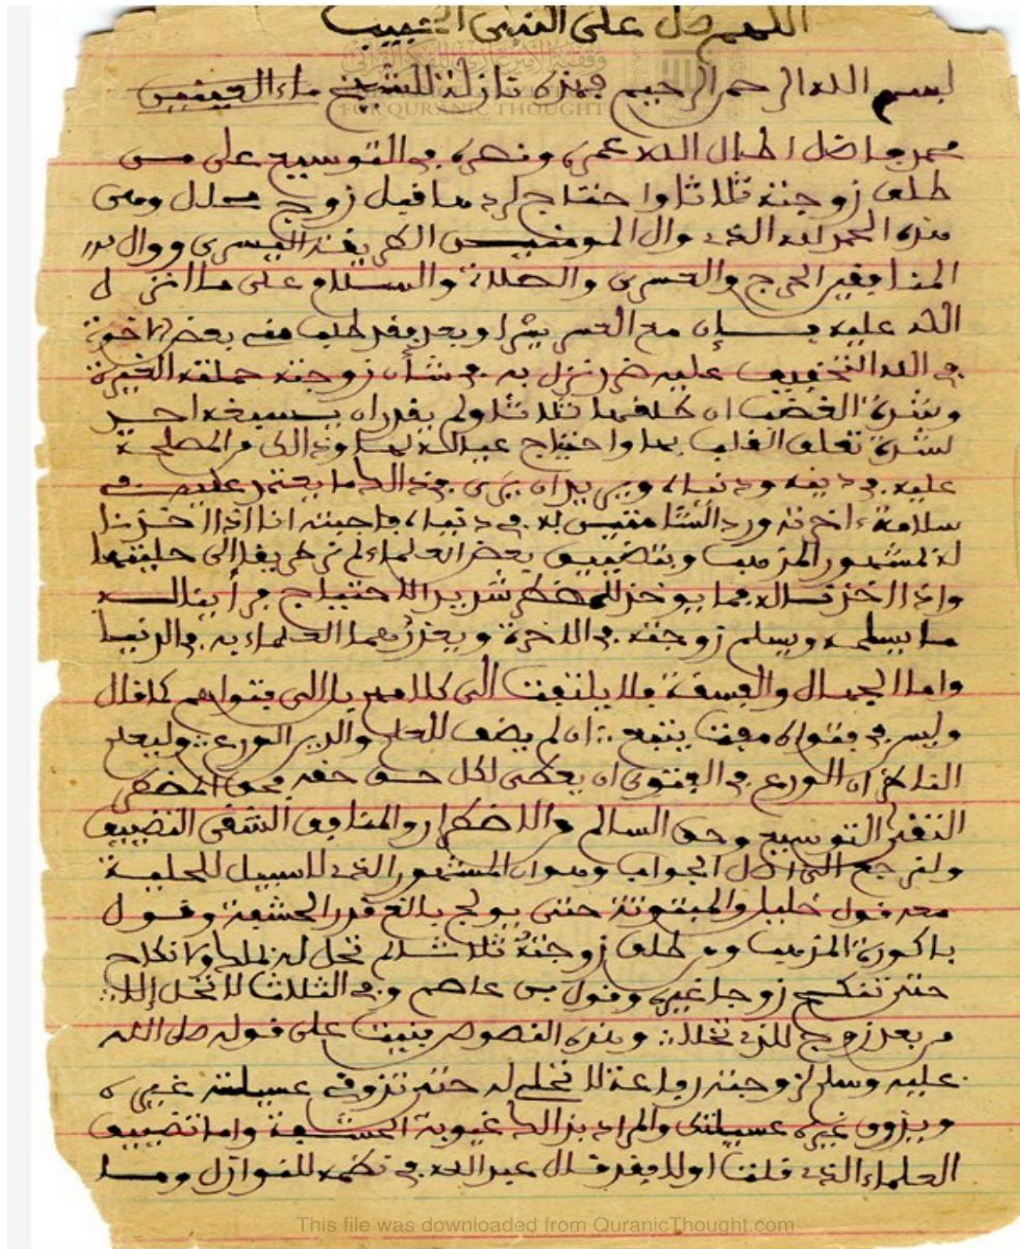 اللهم صل على النبي الحبيب
بسم الله الرحمن الرحيم فهذه نازلة للشيخ ماء العينين
محمد فاضل اطال الله عمره ونصره في التوسيع على من
طلق زوجته ثلاثا واحتاج لرد ما قبل زوج
هذه الحمد لله الذي وال المومنين اليسرى ووال
المنافقين الحرج والعسرى والصلاة والسلام على ما انزل
الله عليه بـإن مع العسر يسرا وبعد فقد طلب منه بعض الاخوة
في الله التخفيف عليه ضر نزل به في شأن زوجته حملته الغيرة
وشدة الغضب ان طلقها ثلاثا ولم يقدر ان احد
لشدة تعلق القلب بها واحتياج عياله لها وذالك من المصلحة
عليه في دينه ودنياه ويريد ان يرى في ذالك ما يعتمد عليه في
سلامة اخرته ورد له في دنياه فاجبته انا اذا اخذنا
له لمشهور المذهب وبتضييق بعض العلماء لم نر طريقا الى حليتها
واذا اخذنا له فما يوخذ للمضطر شديد الاحتياج
ما يسلمه ويسلم زوجته في الاخرة ويعذرهما العلماء به في الدنيا
واما الجهال والفسقة فلا يلتفت الى كلامهم بل الى فتواهم كما قال
وليس في فتواه مفت يتبع :: ان لم يضف للعلم والدين الورع :: وليعلم
الناظر ان الورع في الفتوى ان يعطى لكل حق حقه فحق المضطر
التقي التوسيع وحق السالم من الاضطرار والمنافق الشقي التضييق
ولنرجع الى اصل الجواب وهو ان المشهور الذي لا سبيل للحلية
معه قول خليل والمبتوتة حتى يولج بالغ قدر الحشفة وقول
باكورة المذهب ومن طلق زوجته ثلاثا لم تحل له بملك ولا نكاح
حتى تنكح زوجا غيره وقول بن عاصم وفي الثلاث لا تحل إلا ::
من بعد زوج للذي تخلا :: وهذه النصوص بنيت على قوله صلى الله
عليه وسلم لزوجة رفاعة لا تحلي له حتى تذوقي عسيلة غيره
ويذوق غيره عسيلتك والمراد بذالك غيوبة الحشفة واما تضييق
العلماء الذي قلنا اولا فقد قال عبد الله في نظمه للنوازل وما
This file was downloaded from QuranicThought.com